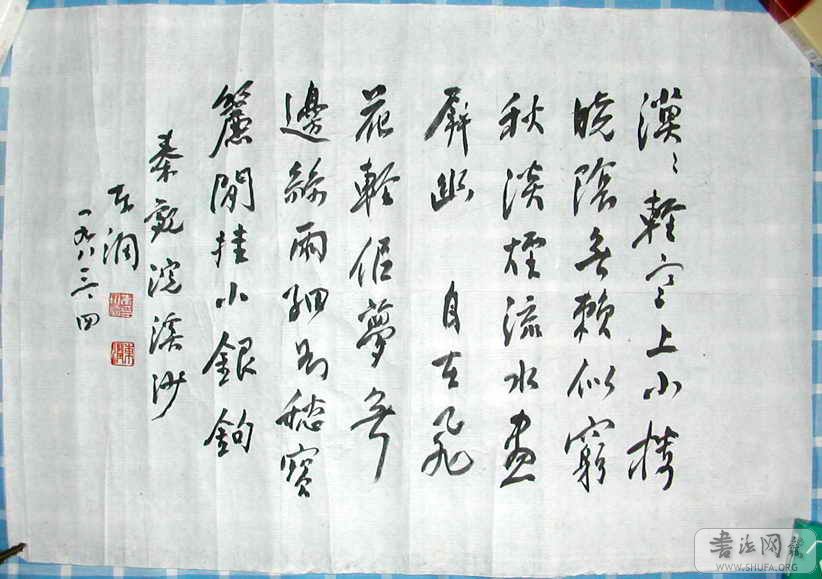 漠〻輕寒上小樓
曉陰無賴似窮
秋淡煙流水畫
屏幽 自在飛
花輕佀夢無
邊絲雨細如愁寶
簾閒挂小銀鉤
秦觀浣溪沙
東潤
一九八三、四
書法网
WWW.SHUFA.ORG